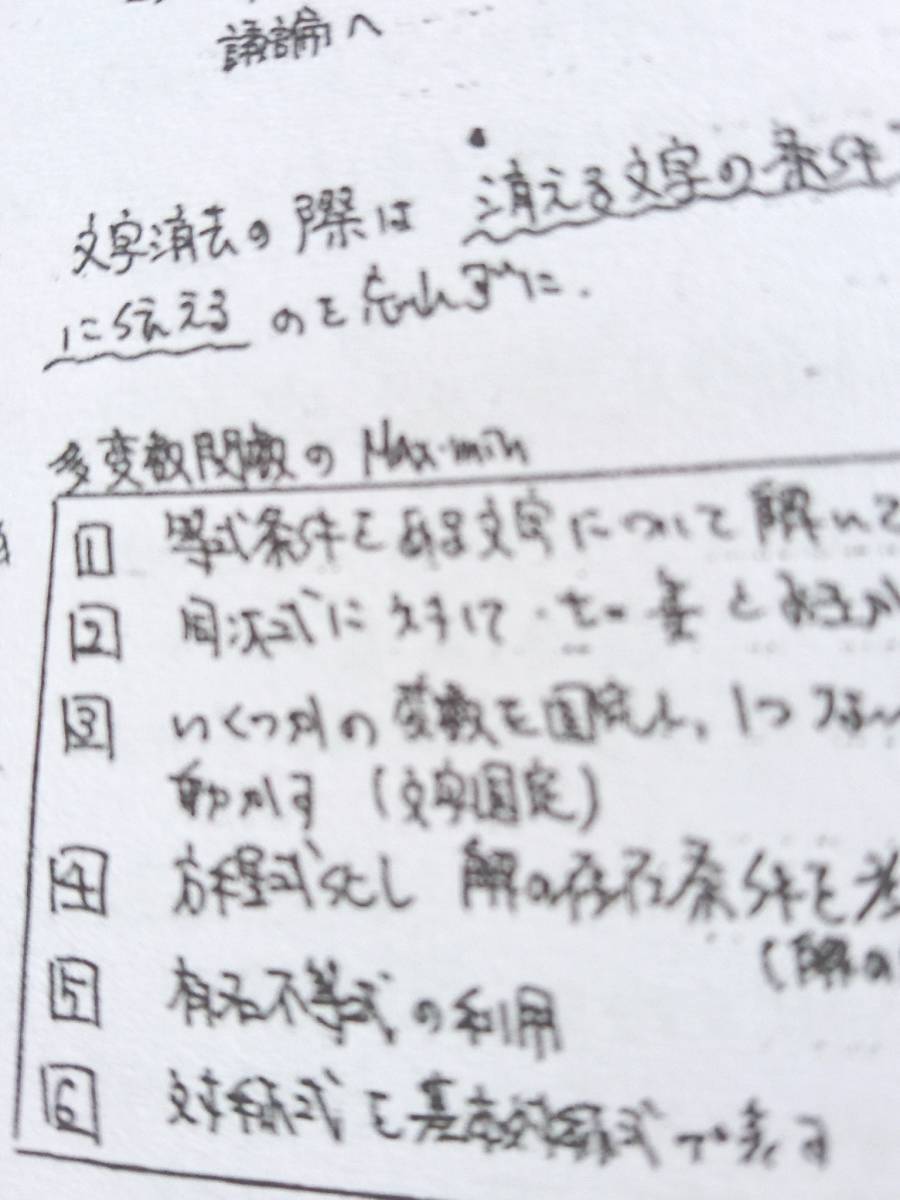 議論へ
文字消去の際は 消える文字の条件
に伝えるのを忘れずに.
多変数関数の Max・min
1 等式条件をある文字について解いて
2 同次式に対して
3 いくつかの変数を固定し、1つ
動かす (文字固定)
4 方程式化し 解の存在条件を
(解の
5 有名不等式の利用
6 対称式を基本対称式で表す